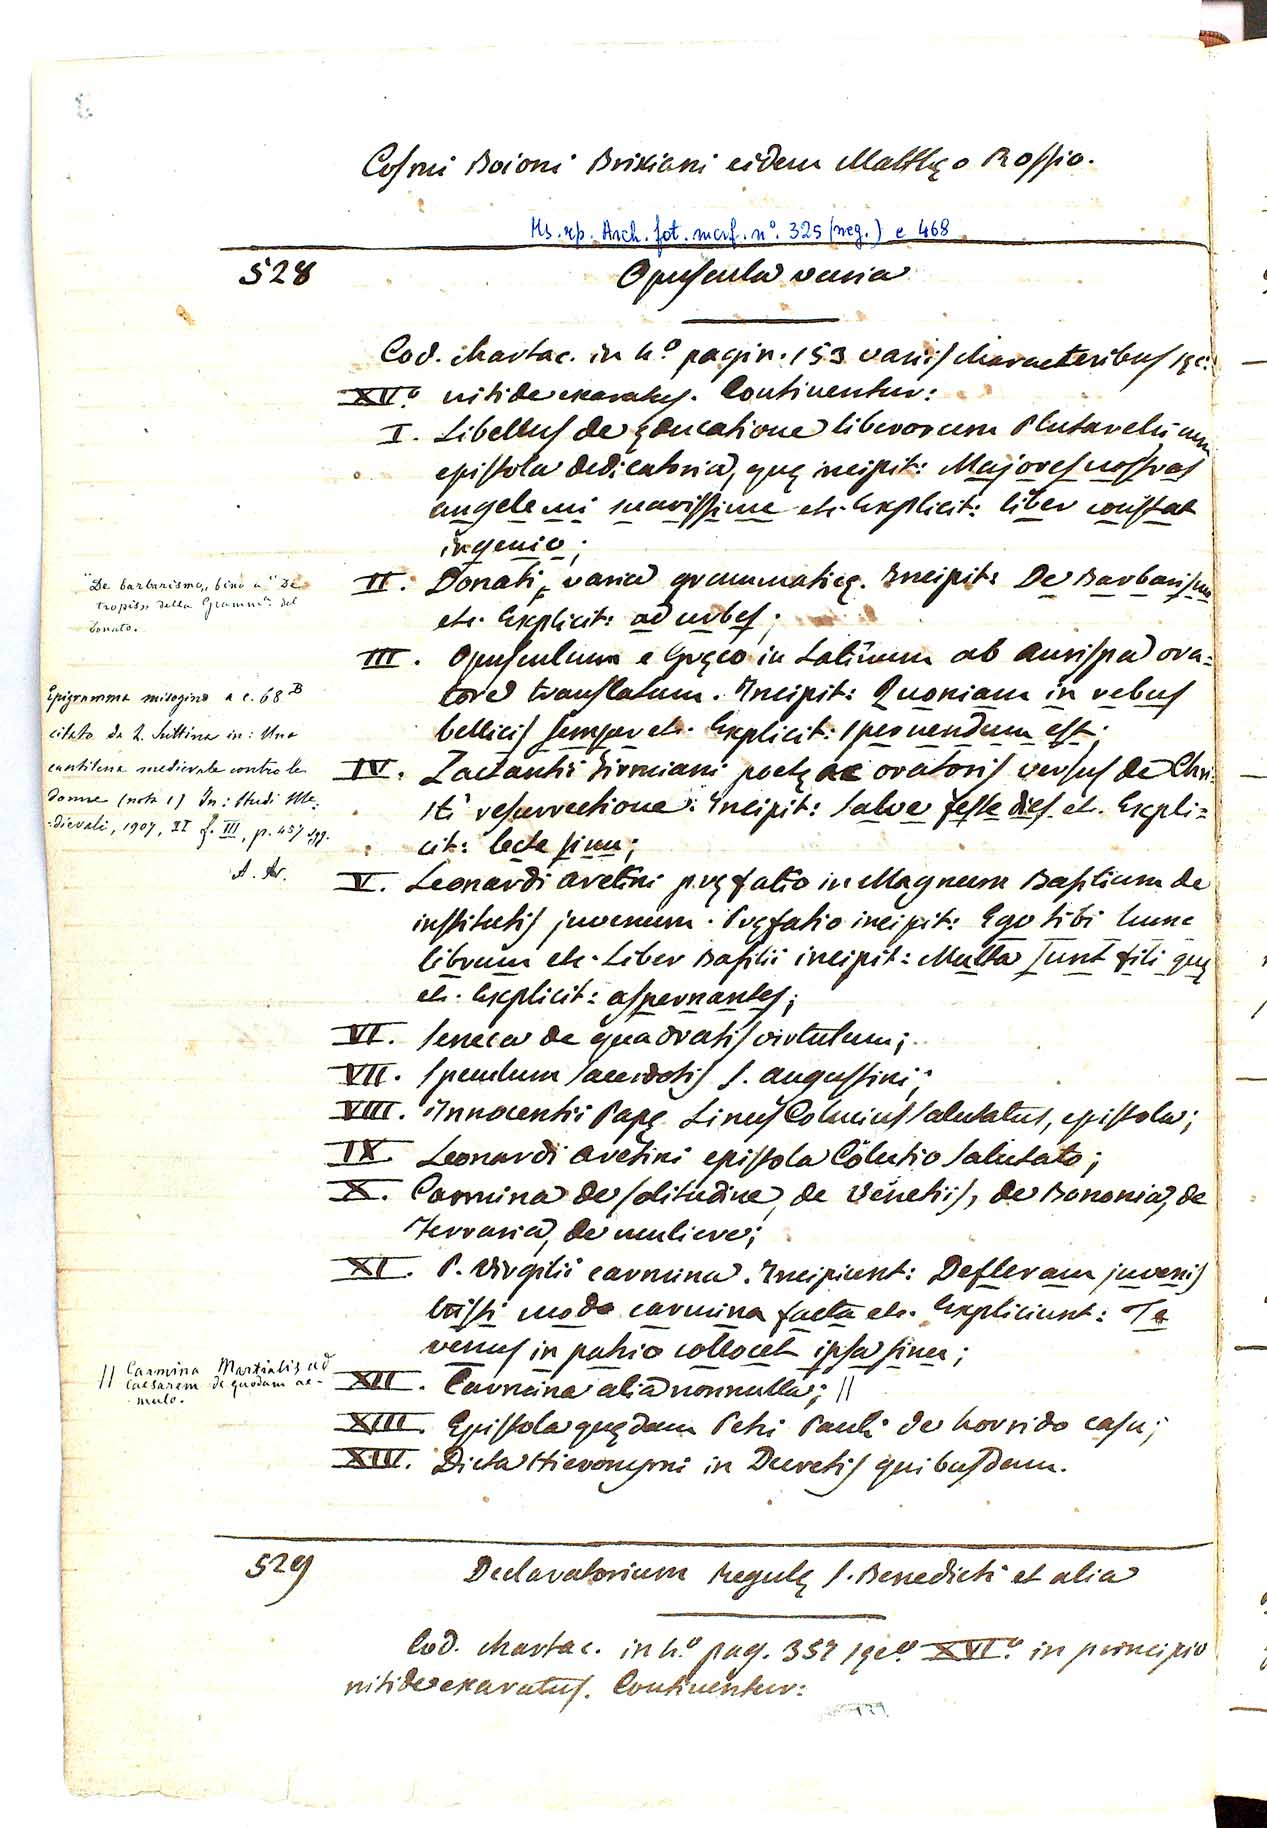 Cosmi Boioni Brixiani eidem Matthęo Rossio.
Ms. rp. Arch. fot. mcrf. n°. 325 (neg.) e 468
528
Opuscula varia
Cod. chartac. in 4.º pagin. 153 variis characteribus sęc:
XV.º nitide exaratus. Continentur:
I. Libellus de ęducatione liberorum Plutarchi cum
epistola dedicatoria, quę incipit: Majores nostras
angele mi suavissime etc. Explicit: liber constat
ingenio;
II. Donati, varia grammaticę. Incipit: De Barbarismo
etc. Explicit: ad urbes;
"De barbarismo,, fino a "De
tropis,, della Gramm.ª del
Donato.
III. Opusculum e Gręco in Latinum ab Aurispa ora=
tore translatum. Incipit: Quoniam in rebus
bellicis semper etc. Explicit: spernendum est;
Epigramma misogino a c. 68 B
citato da L. Suttina in: Una
cantilena medievale contro le
donne (nota 1) In: Studi Me-
dievali, 1907, II f. III, p. 457 sgg.
IV. Lactantii Firmiani poetę ac oratoris versus de Chri-
sti resurrectione. Incipit: Salve feste dies etc. Expli=
cit: lecte sinu;
V. Leonardi Aretini pręfatio in Magnum Basilium de
institutis juvenum. Pręfatio incipit: Ego tibi hunc
librum etc. Liber Basilii incipit: Multa sunt fili quę
etc. Explicit: aspernantes;
VI. Seneca de quadratis virtutum;
VII. Speculum sacerdotis S. Augustini;
VIII. Innocentii Papę Linus Colucius Salutatus, epistola;
IX. Leonardi Aretini epistola Colutio Salutato;
X. Carmina de solitudine, de Venetiis, de Bononia, de
Ferraria, de muliere;
XI. P. Virgilii carmina. Incipiunt: Defleram juvenis
tristi modo carmina facta etc. Expliciunt: Te
venus in patrio collocet ipsa sinu;
XII. Carmina alia nonnulla; //
// Carmina Martialis ad
Caesarem de quodam ae-
mulo.
XIII. Epistola quędam Petri Pauli de horrido casu;
XIV. Dicta Hieronymi in Decretis quibusdam.
529
Declaratorium Regulę S. Benedicti et alia
Cod. chartac. in 4.º pag. 357 sęc.º XVI.º in principio
nitide exaratus. Continentur: